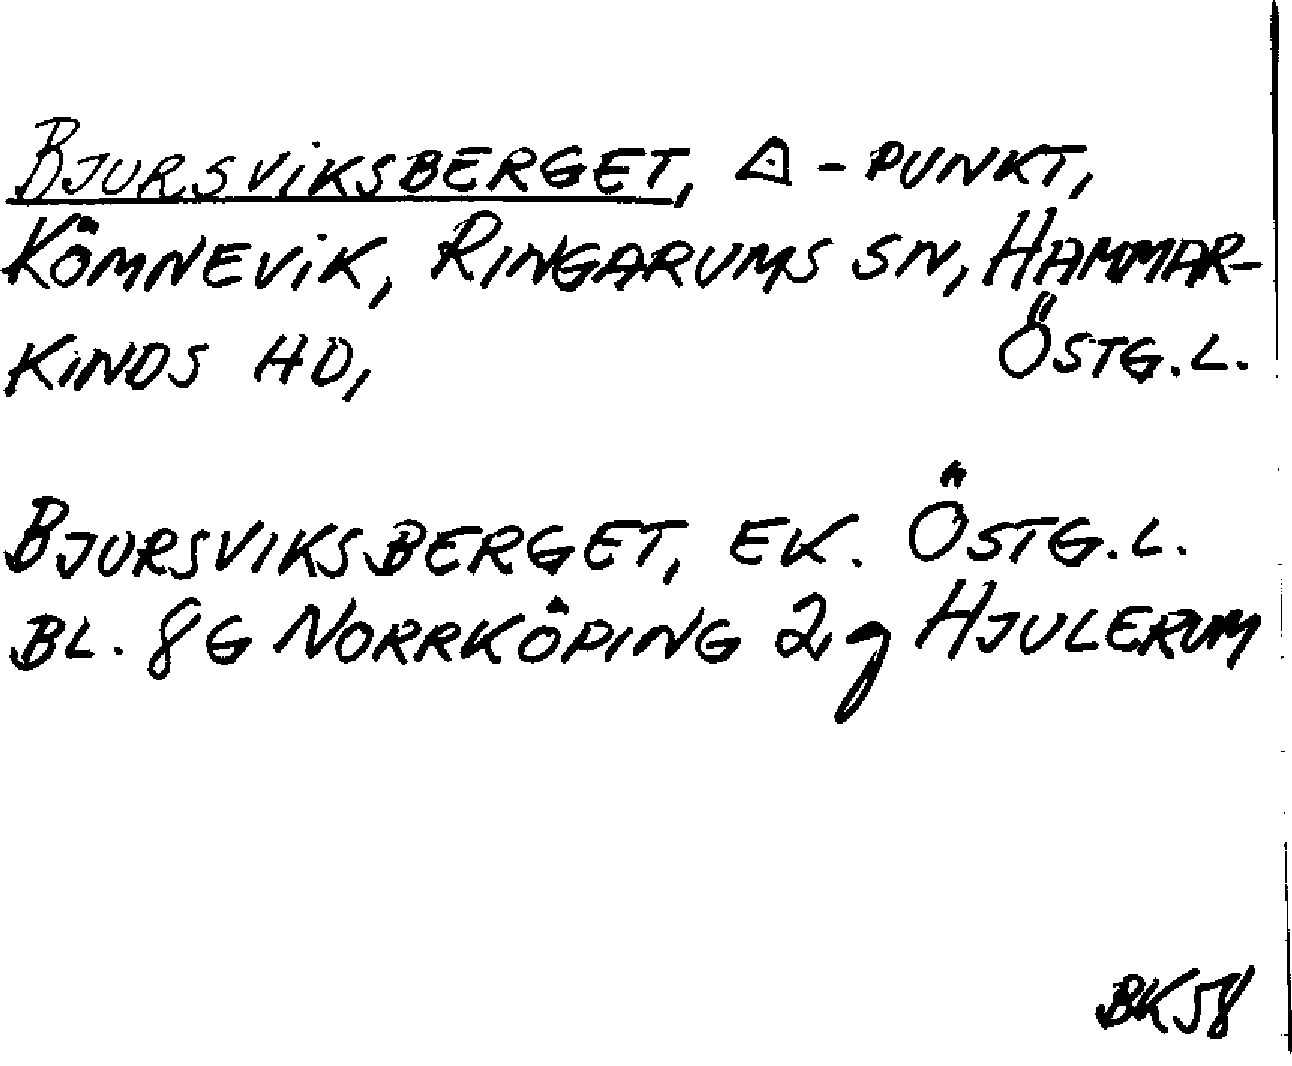 BJURSVIKSBERGET, △-PUNKT,
KÖMNEVIK, RINGARUMS SN, HAMMAR-
KINDS HD, ÖSTG.L.
BJURSVIKSBERGET, EK. ÖSTG.L.
BL. 8G NORRKÖPING 2g HJULERUM
BK58